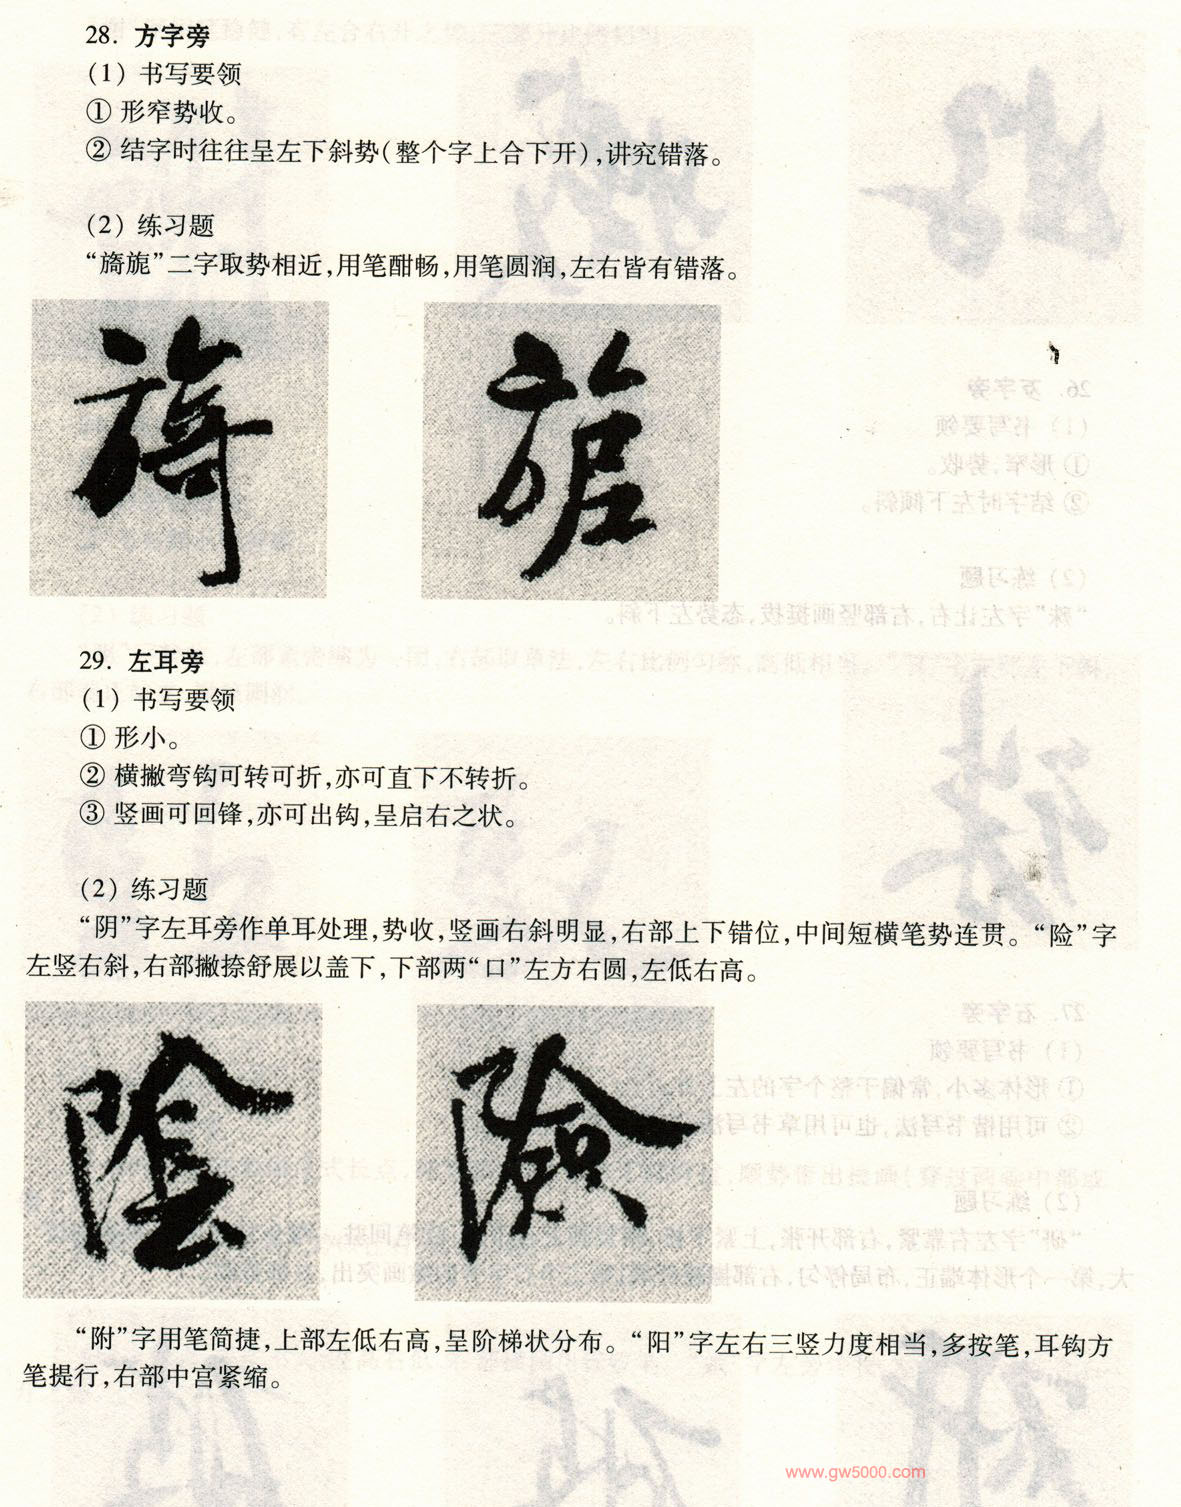 28. 方字旁
(1) 书写要领
① 形窄势收。
② 结字时往往呈左下斜势(整个字上合下开),讲究错落。
(2) 练习题
“旖旎”二字取势相近,用笔酣畅,用笔圆润,左右皆有错落。
旖 旎
29. 左耳旁
(1) 书写要领
① 形小。
② 横撇弯钩可转可折,亦可直下不转折。
③ 竖画可回锋,亦可出钩,呈启右之状。
(2) 练习题
“阴”字左耳旁作单耳处理,势收,竖画右斜明显,右部上下错位,中间短横笔势连贯。“险”字
左竖右斜,右部撇捺舒展以盖下,下部两“口”左方右圆,左低右高。
陰 險
“附”字用笔简捷,上部左低右高,呈阶梯状分布。“阳”字左右三竖力度相当,多按笔,耳钩方
笔提行,右部中宫紧缩。
www.gw5000.com